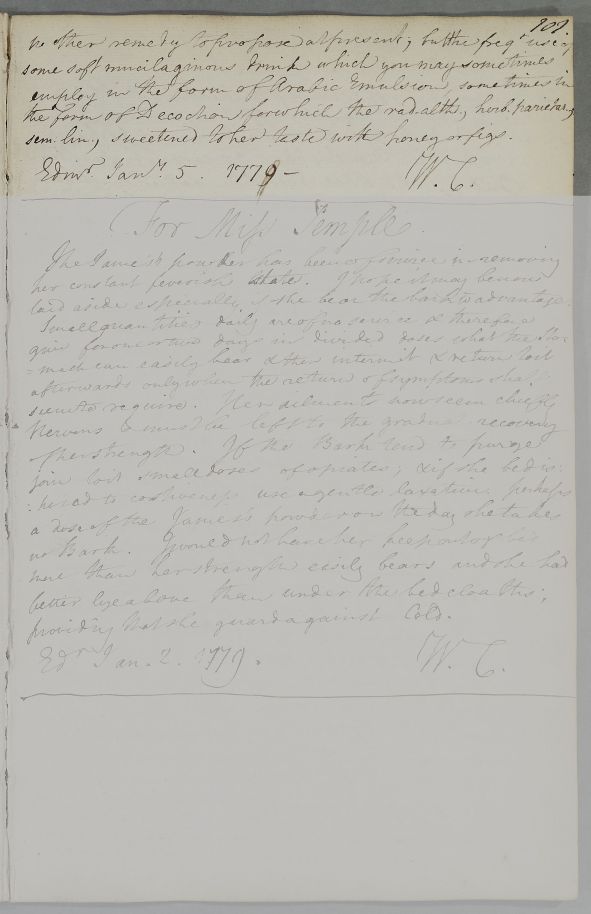 101.
no other remedy to propose at present; but the freqt. use of
some soft mucilaginous drink which you may sometimes
employ in the form of Arabic Emulsion, sometimes in
the form of Decoction for which the rad. alth., herb. parietar.,
sem. lin., sweetened to her taste with honey or figs.
Edinr. Jany. 5. 1779 – W. C.
For Miss Temple.
The James's powder has been of service in removing
her constant feverish state. I hope it may be now
laid aside especially if she bear the bark to advantage.
Small quantities daily are of no service & therefore
give for one or two days in divided doses what the sto-
-mach can easily bear & then intermit & return to it
afterwards only when the return of symptoms shall
seem to require. Her ailments now seem chiefly
Nervous & must be left to the gradual recovery
of her strength. If the Bark tend to purge
join to it small doses of opiates; & if she be dis-
-posed to costiveness use a gentle laxative perhaps
a dose of the James's powder on the day she takes
no Bark. I would not have her keep out of bed
more than her strength easily bears and she had
better lye above than under the bed cloaths;
providing that she guard against Cold.
Edr. Jan. 2. 1779. W. C.